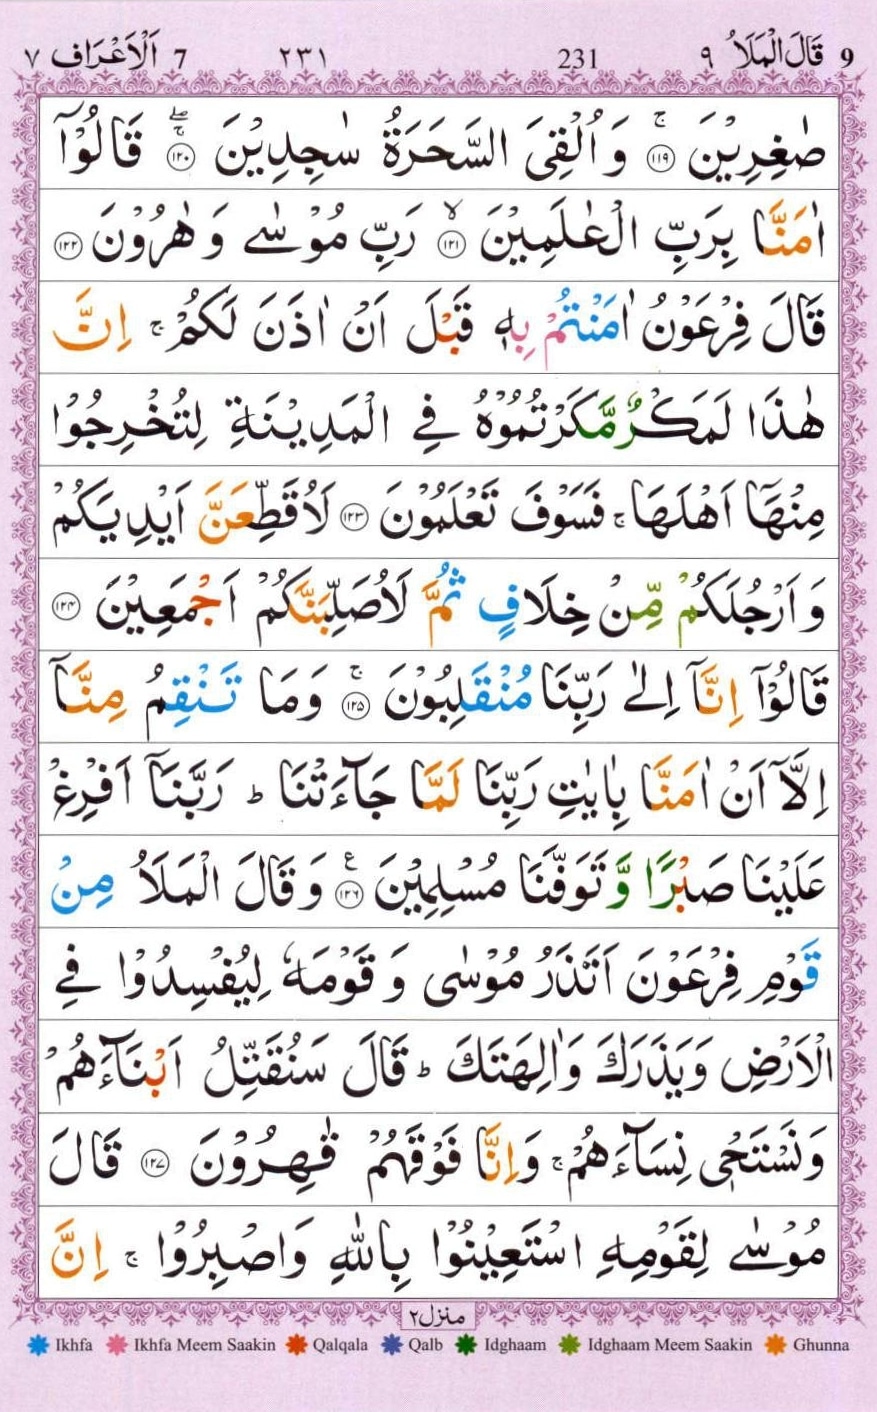 9 قَالَ الْمَلَاُ ٩ 231 ٢٣١ 7 اَلْاَعْرَاف ٧
صٰغِرِيْنَ ۚ ﴿١١٩﴾ وَاُلْقِیَ السَّحَرَةُ سٰجِدِيْنَ ۖۚ ﴿١٢٠﴾ قَالُوْٓا
اٰمَنَّا بِرَبِّ الْعٰلَمِيْنَ ۙ ﴿١٢١﴾ رَبِّ مُوْسٰی وَهٰرُوْنَ ﴿١٢٢﴾
قَالَ فِرْعَوْنُ اٰمَنْتُمْ بِهٖ قَبْلَ اَنْ اٰذَنَ لَكُمْ ۚ اِنَّ
هٰذَا لَمَكْرٌ مَّكَرْتُمُوْهُ فِی الْمَدِيْنَةِ لِتُخْرِجُوْا
مِنْهَآ اَهْلَهَا ۚ فَسَوْفَ تَعْلَمُوْنَ ﴿١٢٣﴾ لَاُقَطِّعَنَّ اَيْدِيَكُمْ
وَاَرْجُلَكُمْ مِّنْ خِلَافٍ ثُمَّ لَاُصَلِّبَنَّكُمْ اَجْمَعِيْنَ ﴿١٢٤﴾
قَالُوْٓا اِنَّآ اِلٰی رَبِّنَا مُنْقَلِبُوْنَ ۚ ﴿١٢٥﴾ وَمَا تَنْقِمُ مِنَّآ
اِلَّآ اَنْ اٰمَنَّا بِاٰيٰتِ رَبِّنَا لَمَّا جَآءَتْنَا ؕ رَبَّنَآ اَفْرِغْ
عَلَيْنَا صَبْرًا وَّتَوَفَّنَا مُسْلِمِيْنَ ﴿١٢٦﴾ ع وَقَالَ الْمَلَاُ مِنْ
قَوْمِ فِرْعَوْنَ اَتَذَرُ مُوْسٰی وَقَوْمَهٗ لِيُفْسِدُوْا فِی
الْاَرْضِ وَيَذَرَكَ وَاٰلِهَتَكَ ؕ قَالَ سَنُقَتِّلُ اَبْنَآءَهُمْ
وَنَسْتَحْیٖ نِسَآءَهُمْ ۚ وَاِنَّا فَوْقَهُمْ قٰهِرُوْنَ ﴿١٢٧﴾ قَالَ
مُوْسٰی لِقَوْمِهِ اسْتَعِيْنُوْا بِاللّٰهِ وَاصْبِرُوْا ۚ اِنَّ
منزل ٢
Ikhfa Ikhfa Meem Saakin Qalqala Qalb Idghaam Idghaam Meem Saakin Ghunna